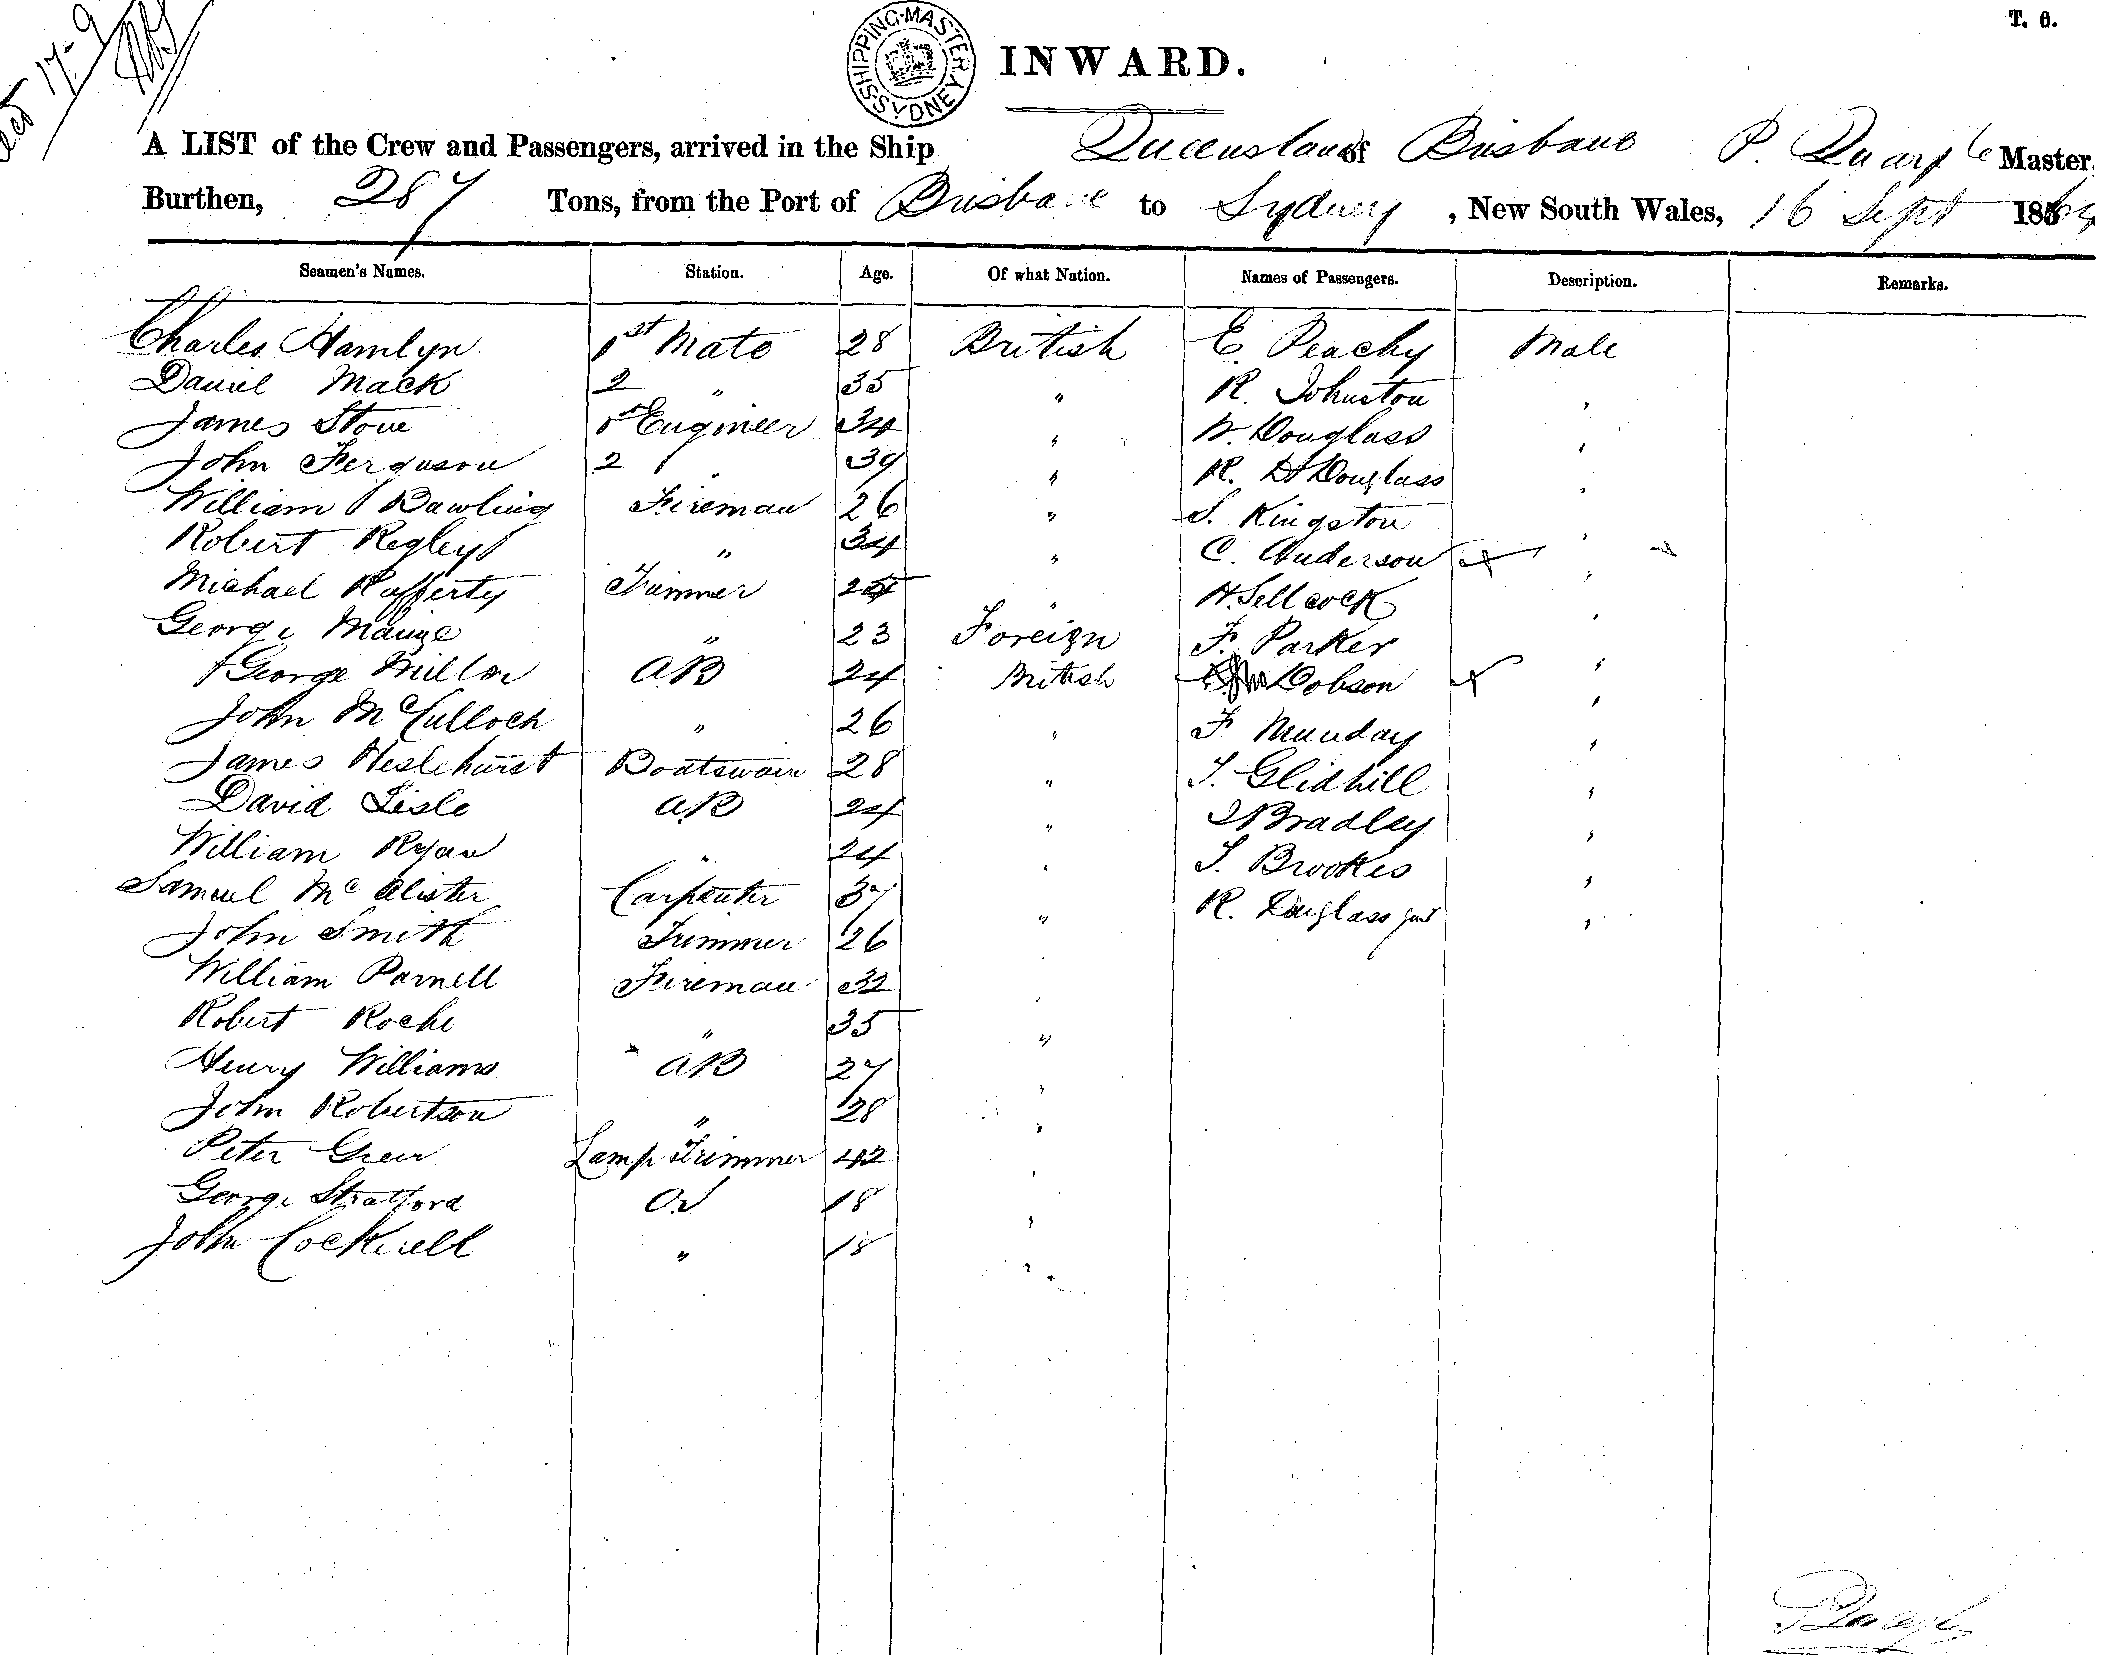 T. 6.
SHIPPING·MASTER SYDNEY
INWARD.
A LIST of the Crew and Passengers, arrived in the Ship Queensland of Brisbane P. Quayle Master,
Burthen, 287 Tons, from the Port of Brisbane to Sydney, New South Wales, 16 Sept 186
Seamen's Names. Station. Age. Of what Nation. Names of Passengers. Description. Remarks.
Charles Hamlyn 1st Mate 28 British E. Peachy Male
Daniel Mack 2 " 35 " R. Johnston "
James Stone 1st Engineer 34 " W. Douglass "
John Ferguson 2 " 39 " R. D Douglass "
William Bawling Fireman 26 " S. Kingston "
Robert Regley " 34 " C. Anderson "
Michael Rafferty Trimmer 25 " H. Sellcock "
George Mange " 23 Foreign F. Parker "
George Miller AB 24 British Dobson "
John McCulloch " 26 " F. Munday "
James Heslehurst Boatswain 28 " T. Glidhill "
David Lisle AB 24 " J Bradley "
William Ryan " 24 " T. Brookes "
Samuel McAlister Carpenter 37 " R. Douglass junr "
John Smith Trimmer 26 "
William Parnell Fireman 32 "
Robert Roche " 35 "
Henry Williams AB 27 "
John Robertson " 28 "
Peter Greer Lamp Trimmer 42 "
George Stratford OS 18 "
John Cockrell " 18 "